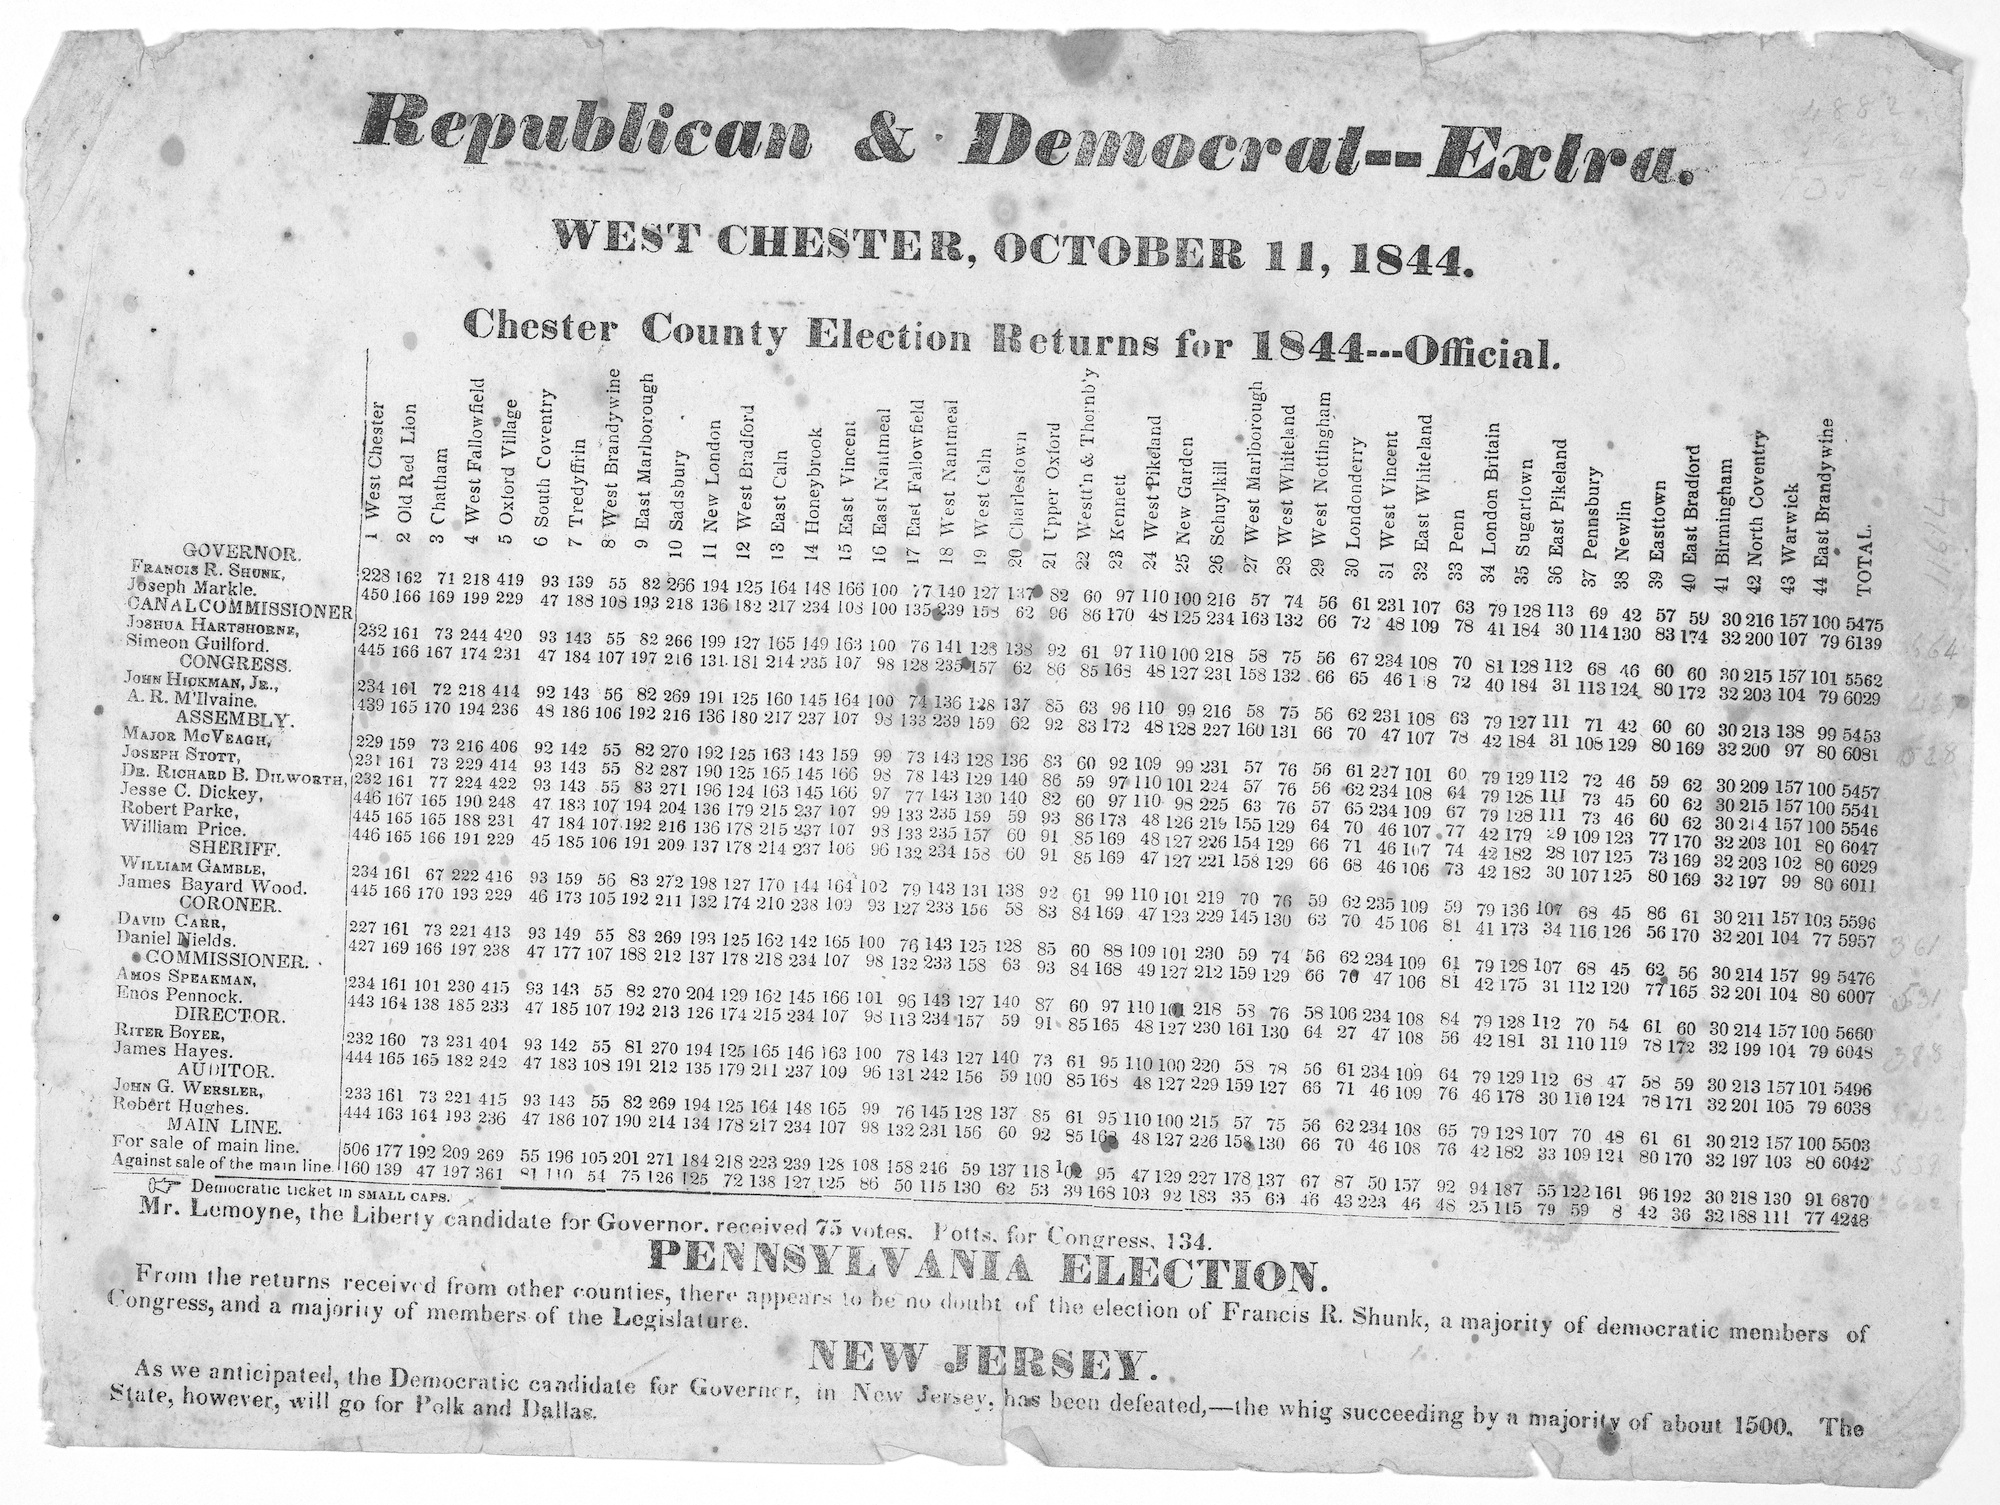 Republican & Democrat--Extra.
WEST CHESTER, OCTOBER 11, 1844.
Chester County Election Returns for 1844---Official.
1 West Chester
2 Old Red Lion
3 Chatham
4 West Fallowfield
5 Oxford Village
6 South Coventry
7 Tredyffrin
8 West Brandywine
9 East Marlborough
10 Sadsbury
11 New London
12 West Bradford
13 East Caln
14 Honeybrook
15 East Vincent
16 East Nantmeal
17 East Fallowfield
18 West Nantmeal
19 West Caln
20 Charlestown
21 Upper Oxford
22 Westt'n & Thornb'y
23 Kennett
24 West Pikeland
25 New Garden
26 Schuylkill
27 West Marlborough
28 West Whiteland
29 West Nottingham
30 Londonderry
31 West Vincent
32 East Whiteland
33 Penn
34 London Britain
35 Sugartown
36 East Pikeland
37 Pennsbury
38 Newlin
39 Easttown
40 East Bradford
41 Birmingham
42 North Coventry
43 Warwick
44 East Brandywine
TOTAL.
GOVERNOR.
FRANCIS R. SHUNK, 228 162 71 218 419 93 139 55 82 266 194 125 164 148 166 100 77 140 127 137 82 60 97 110 100 216 57 74 56 61 231 107 63 79 128 113 69 42 57 59 30 216 157 100 5475
Joseph Markle. 450 166 169 199 229 47 188 108 193 218 136 182 217 234 108 100 135 239 158 62 96 86 170 48 125 234 163 132 66 72 48 109 78 41 184 30 114 130 83 174 32 200 107 79 6139
CANAL COMMISSIONER
JOSHUA HARTSHORNE, 232 161 73 244 420 93 143 55 82 266 199 127 165 149 163 100 76 141 128 138 92 61 97 110 100 218 58 75 56 67 234 108 70 81 128 112 68 46 60 60 30 215 157 101 5562
Simeon Guilford. 445 166 167 174 231 47 184 107 197 216 131 181 214 235 107 98 128 235 157 62 86 85 168 48 127 231 158 132 66 65 46 1 8 72 40 184 31 113 124 80 172 32 203 104 79 6029
CONGRESS.
JOHN HICKMAN, JR., 234 161 72 218 414 92 143 56 82 269 191 125 160 145 164 100 74 136 128 137 85 63 96 110 99 216 58 75 56 62 231 108 63 79 127 111 71 42 60 60 30 213 138 99 5453
A. R. M'Ilvaine. 439 165 170 194 236 48 186 106 192 216 136 180 217 237 107 98 133 239 159 62 92 83 172 48 128 227 160 131 66 70 47 107 78 42 184 31 108 129 80 169 32 200 97 80 6081
ASSEMBLY.
MAJOR MCVEAGH, 229 159 73 216 406 92 142 55 82 270 192 125 163 143 159 99 73 143 128 136 83 60 92 109 99 231 57 76 56 61 227 101 60 79 129 112 72 46 59 62 30 209 157 100 5457
JOSEPH STOTT, 231 161 73 229 414 93 143 55 82 287 190 125 165 145 166 98 78 143 129 140 86 59 97 110 101 224 57 76 56 62 234 108 64 79 128 111 73 45 60 62 30 215 157 100 5541
DR. RICHARD B. DILWORTH, 232 161 77 224 422 93 143 55 83 271 196 124 163 145 166 97 77 143 130 140 82 60 97 110 98 225 63 76 57 65 234 109 67 79 128 111 73 46 60 62 30 214 157 100 5546
Jesse C. Dickey, 446 167 165 190 248 47 183 107 194 204 136 179 215 237 107 99 133 235 159 59 93 86 173 48 126 219 155 129 64 70 46 107 77 42 179 29 109 123 77 170 32 203 101 80 6047
Robert Parke, 445 165 165 188 231 47 184 107 192 216 136 178 215 237 107 98 133 235 157 60 91 85 169 48 127 226 154 129 66 71 46 107 74 42 182 28 107 125 73 169 32 203 102 80 6029
William Price. 446 165 166 191 229 45 185 106 191 209 137 178 214 237 106 96 132 234 158 60 91 85 169 47 127 221 158 129 66 68 46 106 73 42 182 30 107 125 80 169 32 197 99 80 6011
SHERIFF.
WILLIAM GAMBLE, 234 161 67 222 416 93 159 56 83 272 198 127 170 144 164 102 79 143 131 138 92 61 99 110 101 219 70 76 59 62 235 109 59 79 136 107 68 45 86 61 30 211 157 103 5596
James Bayard Wood. 445 166 170 193 229 46 173 105 192 211 132 174 210 238 109 93 127 233 156 58 83 84 169 47 123 229 145 130 63 70 45 106 81 41 173 34 116 126 56 170 32 201 104 77 5957
CORONER.
DAVID CARR, 227 161 73 221 413 93 149 55 83 269 193 125 162 142 165 100 76 143 125 128 85 60 88 109 101 230 59 74 56 62 234 109 61 79 128 107 68 45 62 56 30 214 157 99 5476
Daniel Nields. 427 169 166 197 238 47 177 107 188 212 137 178 218 234 107 98 132 233 158 63 93 84 168 49 127 212 159 129 66 70 47 106 81 42 175 31 112 120 77 165 32 201 104 80 6007
COMMISSIONER.
AMOS SPEAKMAN, 234 161 101 230 415 93 143 55 82 270 204 129 162 145 166 101 96 143 127 140 87 60 97 110 101 218 58 76 58 106 234 108 84 79 128 112 70 54 61 60 30 214 157 100 5660
Enos Pennock. 443 164 138 185 233 47 185 107 192 213 126 174 215 234 107 98 113 234 157 59 91 85 165 48 127 230 161 130 64 27 47 108 56 42 181 31 110 119 78 172 32 199 104 79 6048
DIRECTOR.
RITER BOYER, 232 160 73 231 404 93 142 55 81 270 194 125 165 146 163 100 78 143 127 140 73 61 95 110 100 220 58 78 56 61 234 109 64 79 129 112 68 47 58 59 30 213 157 101 5496
James Hayes. 444 165 165 182 242 47 183 108 191 212 135 179 211 237 109 96 131 242 156 59 100 85 168 48 127 229 159 127 66 71 46 109 76 46 178 30 110 124 78 171 32 201 105 79 6038
AUDITOR.
JOHN G. WERSLER, 233 161 73 221 415 93 143 55 82 269 194 125 164 148 165 99 76 145 128 137 85 61 95 110 100 215 57 75 56 62 234 108 65 79 128 107 70 48 61 61 30 212 157 100 5503
Robert Hughes. 444 163 164 193 236 47 186 107 190 214 134 178 217 234 107 98 132 231 156 60 92 85 168 48 127 226 158 130 66 70 46 108 76 42 182 33 109 121 80 170 32 197 103 80 6042
MAIN LINE.
For sale of main line. 506 177 192 209 269 55 196 105 201 271 184 218 223 239 128 108 158 246 59 137 118 102 95 47 129 227 178 137 67 87 50 157 92 94 187 55 122 161 96 192 30 218 130 91 6870
Against sale of the main line. 160 139 47 197 361 81 110 54 75 126 125 72 138 127 125 86 50 115 130 62 53 39 168 103 92 183 35 63 46 43 223 46 48 25 115 79 59 8 42 36 32 188 111 77 4248
☞ Democratic ticket in SMALL CAPS.
Mr. Lemoyne, the Liberty candidate for Governor, received 75 votes. Potts, for Congress, 134.
PENNSYLVANIA ELECTION.
From the returns received from other counties, there appears to be no doubt of the election of Francis R. Shunk, a majority of democratic members of
Congress, and a majority of members of the Legislature.
NEW JERSEY.
As we anticipated, the Democratic candidate for Governer, in New Jersey, has been defeated,—the whig succeeding by a majority of about 1500. The
State, however, will go for Polk and Dallas.